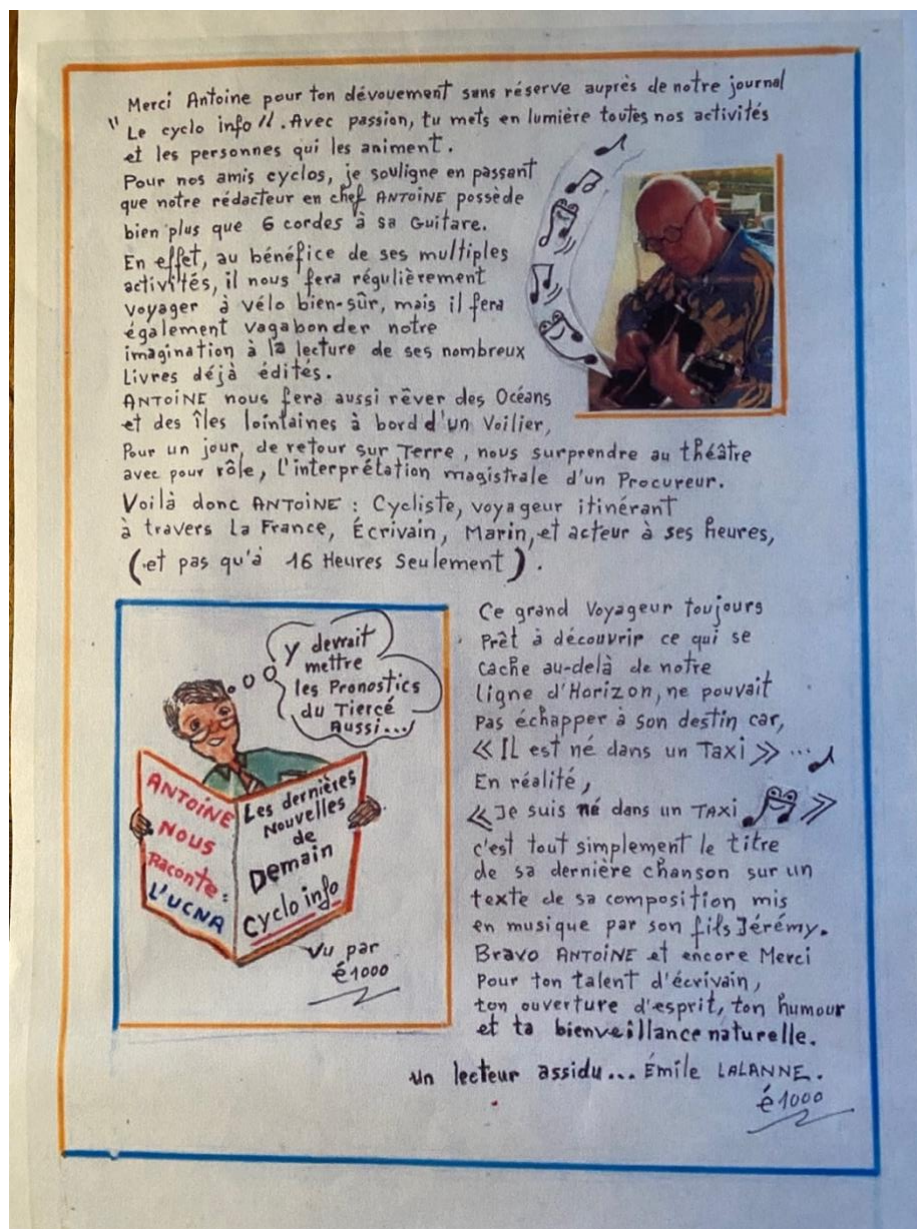 Merci Antoine pour ton dévouement sans réserve auprès de notre journal
" Le cyclo info ". Avec passion, tu mets en lumière toutes nos activités
et les personnes qui les animent.
Pour nos amis cyclos, je souligne en passant
que notre rédacteur en chef ANTOINE possède
bien plus que 6 cordes à sa Guitare.
En effet, au bénéfice de ses multiples
activités, il nous fera régulièrement
voyager à vélo bien-sûr, mais il fera
également vagabonder notre
imagination à la lecture de ses nombreux
Livres déjà édités.
ANTOINE nous fera aussi rêver des Océans
et des îles lointaines à bord d'un Voilier,
Pour un jour, de retour sur Terre, nous surprendre au théâtre
avec pour rôle, L'interprétation magistrale d'un Procureur.
Voilà donc ANTOINE : Cycliste, voyageur itinérant
à travers La France, Écrivain, Marin, et acteur à ses heures,
(et pas qu'à 16 Heures Seulement).
Y devrait
mettre
les Pronostics
du Tiercé
Aussi...
ANTOINE
NOUS
Raconte :
L'UCNA
Les dernières
Nouvelles
de
Demain
Cyclo info
Vu par
é1000
Ce grand Voyageur toujours
Prêt à découvrir ce qui se
cache au-delà de notre
Ligne d'Horizon, ne pouvait
Pas échapper à son destin car,
« Il est né dans un Taxi » ...
En réalité,
« Je suis né dans un TAXI »
c'est tout simplement le titre
de sa dernière chanson sur un
texte de sa composition mis
en musique par son fils Jérémy.
Bravo ANTOINE et encore Merci
Pour ton talent d'écrivain,
ton ouverture d'esprit, ton humour
et ta bienveillance naturelle.
Un lecteur assidu... Émile LALANNE.
é1000